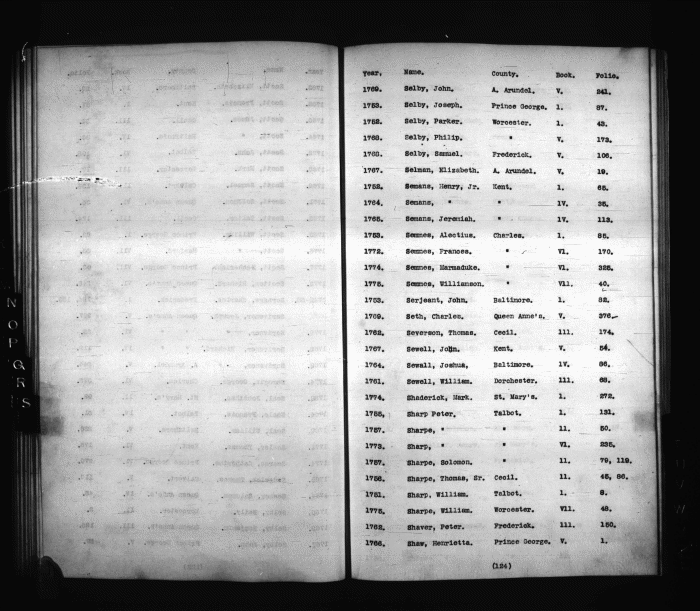 Year. Name. County. Book. Folio.
1769. Selby, John. A. Arundel. V. 241.
1753. Selby, Joseph. Prince George. 1. 87.
1752. Selby, Parker. Worcester. 1. 43.
Selby, Philip. " V. 173.
Selby, Samuel. Frederick. V. 106.
1767. Selman, Elizabeth. A. Arundel. V. 19.
1752. Semans, Henry, Jr. Kent. 1. 65.
1764. Semans, " " IV. 35.
1765. Semans, Jeremiah. " IV. 113.
1753. Semmes, Alectius. Charles. 1. 85.
1772. Semmes, Frances. " VI. 170.
1774. Semmes, Marmaduke. " VI. 325.
1775. Semmes, Williamson. " VII. 40.
1753. Serjeant, John. Baltimore. 1. 82.
1769. Seth, Charles. Queen Anne's. V. 376.
1762. Severson, Thomas. Cecil. 111. 174.
1767. Sewell, John. Kent. V. 54.
1764. Sewall, Joshua. Baltimore. IV. 86.
1761. Sewell, William. Dorchester. 111. 66.
1774. Shaderick, Mark. St. Mary's. 1. 272.
1755. Sharp Peter. Talbot. 1. 131.
1757. Sharpe, " " 11. 50.
1773. Sharp, " " VI. 235.
1757. Sharpe, Solomon. " 11. 79, 119.
1756. Sharpe, Thomas, Sr. Cecil. 11. 45, 86.
1751. Sharp, William. Talbot. 1. 8.
1775. Sharpe, William. Worcester. VII. 48.
1762. Shaver, Peter. Frederick. 111. 150.
1766. Shaw, Henrietta. Prince George. V. 1.
(124)
N
O
P
Q
R
S